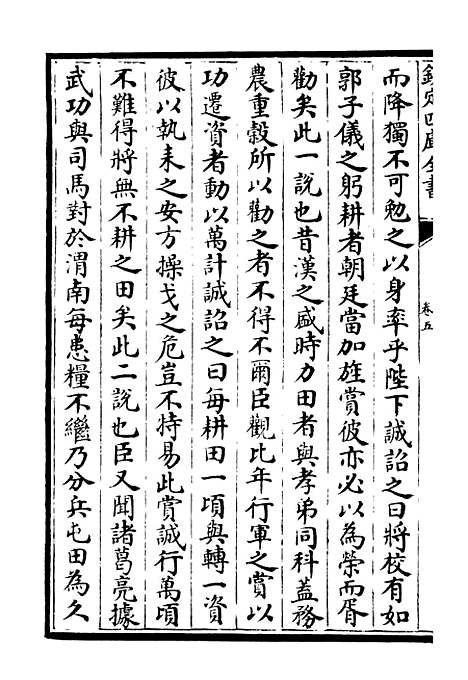 欽定四庫全書
卷五
而降獨不可勉之以身率乎陛下誠詔之曰將校有如
郭子儀之躬耕者朝廷當加旌賞彼亦必以為榮而胥
勸矣此一說也昔漢之盛時力田者與孝弟同科蓋務
農重穀所以勸之者不得不爾臣觀比年行軍之賞以
功遷資者動以萬計誠詔之曰每耕田一頃與轉一資
彼以執耒之安方操戈之危豈不特易此賞誠行萬頃
不難得將無不耕之田矣此二說也臣又聞諸葛亮據
武功與司馬對於渭南每患糧不繼乃分兵屯田為久